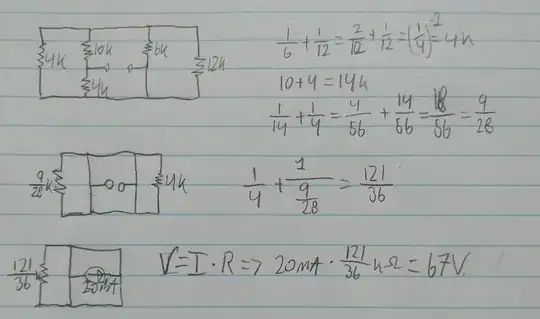 4k 10k 6k 12k
4k
1/6 + 1/12 = 2/12 + 1/12 = (1/4)^-1 = 4k
10+4 = 14k
1/14 + 1/4 = 4/56 + 14/56 = 18/56 = 9/28
9/28 k 4k
1/4 + 1/(9/28) = 121/36
121/36 20mA
V=I·R => 20mA · 121/36 kΩ = 67V